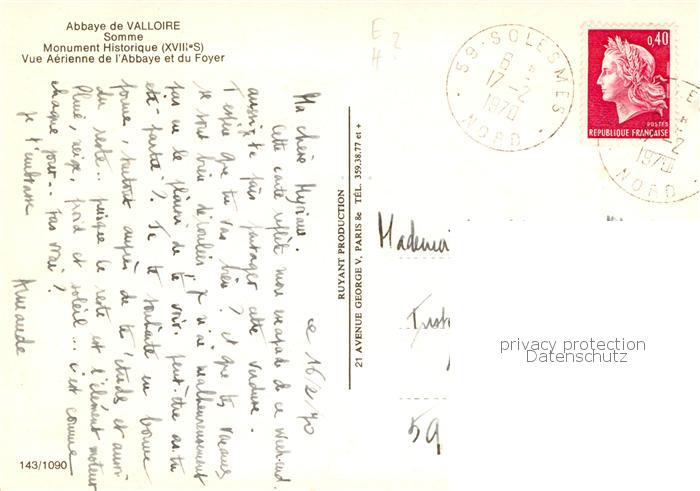 Abbaye de VALLOIRE
Somme
Monument Historique (XVIIIᵉS)
Vue Aérienne de l'Abbaye et du Foyer
le 16/2/70
Ma chère Myriam.
Cette carte reflète mon escapade de ce week-end.
aussi, te fais partager cette verdure.
J'espère que tu vas bien ? et que tes vacances
se sont bien déroulées. Je n'ai malheureusement
pas eu le plaisir de te voir. peut-être as-tu
été partie ? Je te souhaite en bonne
forme, surtout auprès de tes études et aussi
du reste.. puisque le reste est l'élément moteur
Pluie, neige, froid et soleil... c'est comme
chaque jour.. pas vrai ?
je t'embrasse
Armande
143/1090
RUYANT PRODUCTION
21 AVENUE GEORGE V, PARIS 8e TÉL. 359.38.77 et +
E 2
H
59-SOLESMES
17-2
1970
NORD
0,40
POSTES
REPUBLIQUE FRANÇAISE
-2
1970
NORD
Mademoi
59
privacy protection
Datenschutz